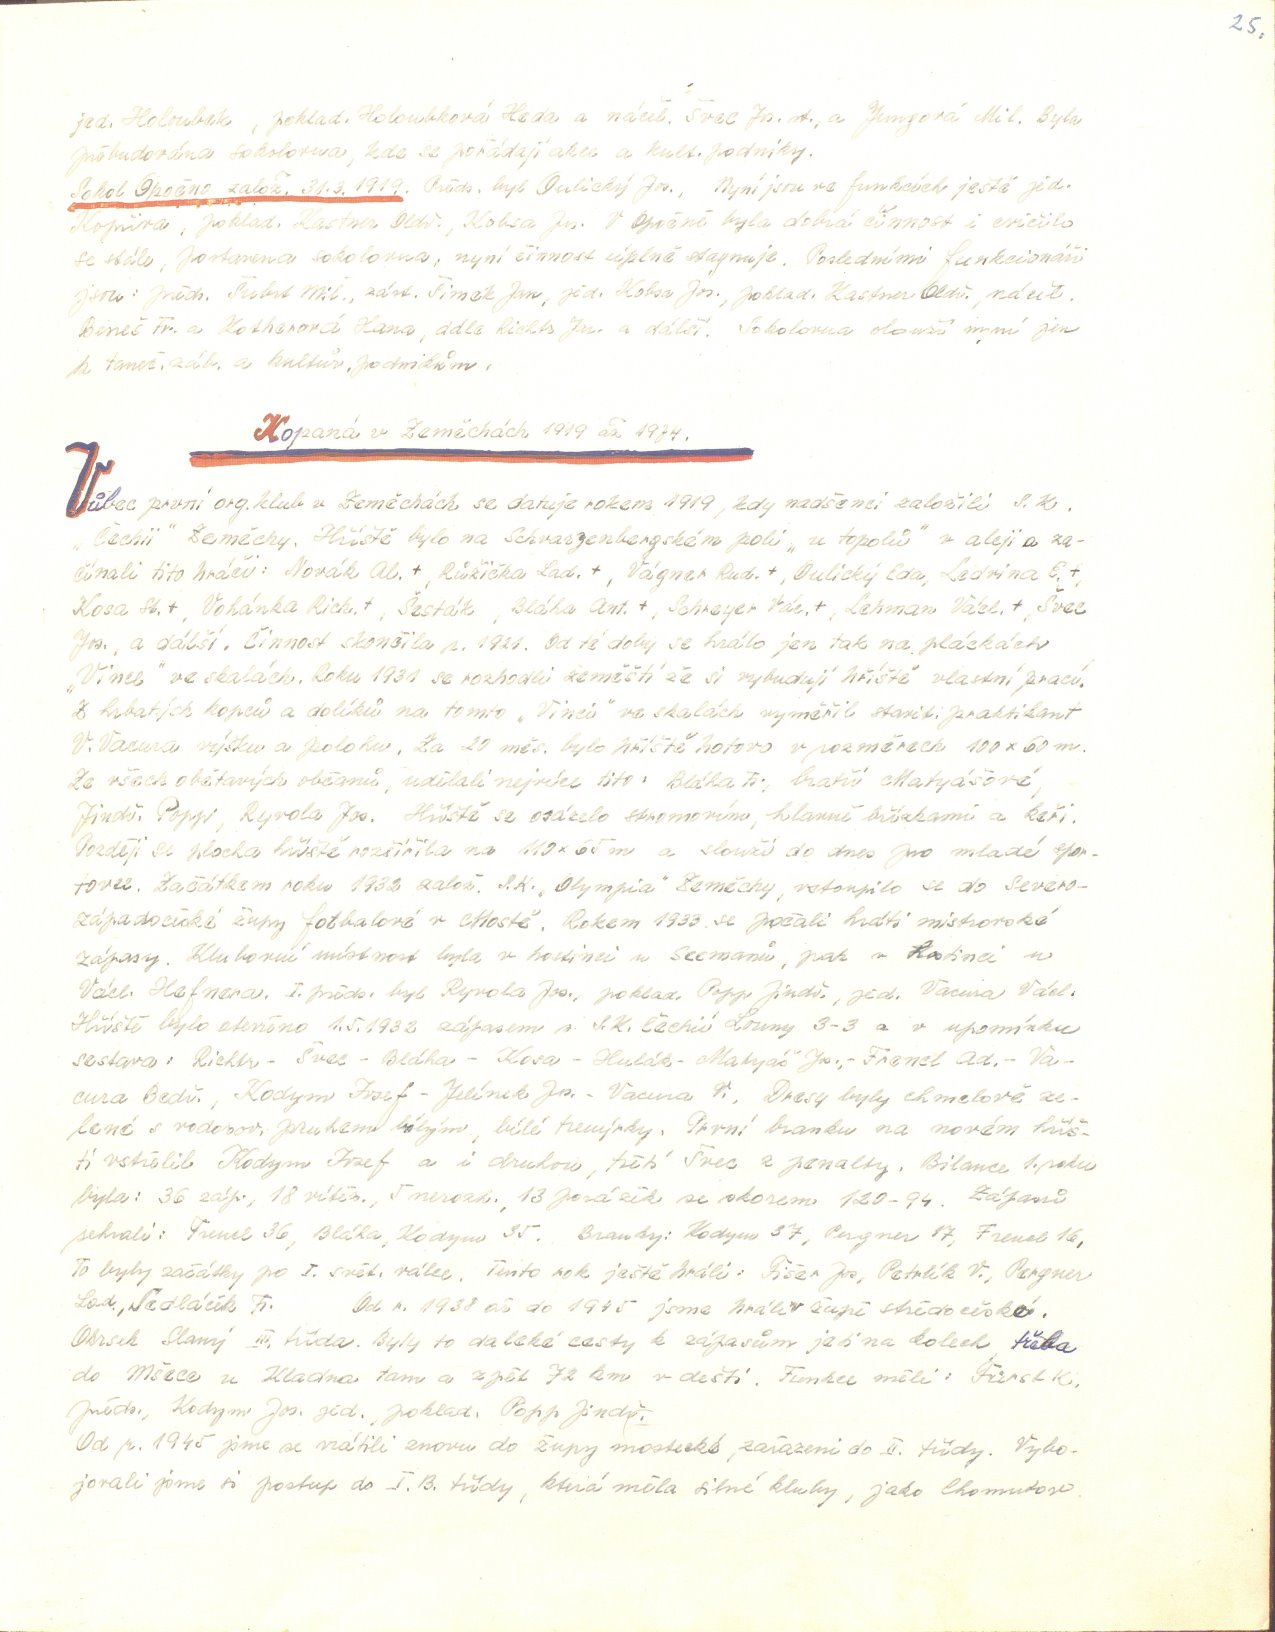 25.
jed. Holoubek, poklad. Holoubková Heda a náčel. Švec Jos. st., a Jungová Mil. Byla
přebudována sokolovna, kde se pořádají akce a kult. podniky.
Sokol Opočno založ. 31.3.1919. Předs. byl Oulický Jos., Nyní jsou ve funkcích ještě jed.
Kopřiva, poklad. Kastner Oldř., Kobsa Jos. V Opočně byla dobrá činnost i cvičilo
se stále, postavena sokolovna, nyní činnost úplně stagnuje. Posledními funkcionáři
jsou: předs. Šubrt Mil., zást. Šimek Jan, jed. Kobsa Jos., poklad. Kastner Oldř., náčel.
Beneš Fr. a Hotherová Hana, dále Richtr Jos. a další. Sokolovna slouží nyní jen
k taneč. záb. a kultur. podnikům.
Kopaná v Zeměchách 1919 až 1974.
Vůbec první org. klub v Zeměchách se datuje rokem 1919, kdy nadšenci založili S.K.
„Čechii" Zeměchy. Hřiště bylo na Schwarzenbergském poli „u topolů" v aleji a za-
čínali tito hráči: Novák Al. +, Růžička Lad. +, Vágner Rud. +, Oulický Eda, Ledvina E. +,
Kosa St. +, Vohánka Rich. +, Šesták, Bláha Ant. +, Schreyer Vác. +, Lehman Václ. +, Švec
Jos., a další. Činnost skončila r. 1921. Od té doby se hrálo jen tak na pláckách
„Vinci" ve skalách. Roku 1931 se rozhodli zeměští že si vybudují hřiště vlastní prací.
Z hrbatých kopců a dolíků na tomto „Vinci" ve skalách vyměřil stavit. praktikant
V. Vacura výšku a polohu. Za 20 měs. bylo hřiště hotovo v rozměrech 100 x 60 m.
Ze všech obětavých občanů, udělali nejvíce tito: Bláha Fr., bratři Matyášové,
Jindř. Popp, Ryvola Jos. Hřiště se osázelo stromovím, hlavně břízkami a keři.
Později se plocha hřiště rozšířila na 110 x 65 m a slouží do dnes pro mladé spor-
tovce. Začátkem roku 1932 založ. S.K. „Olympia" Zeměchy, vstoupilo se do Severo-
západočeské župy fotbalové v Mostě. Rokem 1933 se počali hráti mistrovské
zápasy. Klubovní místnost byla v hostinci u Seemanů, pak v hostinci u
Václ. Hefnera. I. předs. byl Ryvola Jos., poklad. Popp Jindř., jed. Vacura Václ.
Hřiště bylo otevřeno 1.5.1932 zápasem s S.K. Čechií Louny 3-3 a v upomínku
sestava: Richtr - Švec - Bláha - Kosa - Hulák - Matyáš Jos. - Frencl Ad. - Va-
cura Bedř., Kodym Josef - Jelínek Jos. - Vacura V. Dresy byly chmelově ze-
lené s vodorov. pruhem bílým, bílé trenýrky. První branku na novém hřiš-
ti vstřelil Kodym Josef a i druhou, třetí Švec z penalty. Bilance 1. roku
byla: 36 záp., 18 vítěz., 5 nerozh., 13 porážek se skorem 120-94. Zápasů
sehráli: Frencl 36, Bláha, Kodym 35. Branky: Kodym 37, Pergner 17, Frencl 16,
To byly začátky po I. svět. válce. Tento rok ještě hráli: Fišer Jos, Petrlík V., Pergner
Lad., Sedláček Fr. Od r. 1938 až do 1945 jsme hráli v župě středočeské.
Okrsek Slaný III. třída. Byly to daleké cesty k zápasům jeti na kolech třeba
do Mšece u Kladna tam a zpět 72 km v dešti. Funkce měli: Fürst K.
předs., Kodym Jos. jed., poklad. Popp Jindř.
Od r. 1945 jsme se vrátili znovu do župy mostecké, zařazeni do II. třídy. Vybo-
jovali jsme si postup do I. B. třídy, která měla silné kluby, jako Chomutov